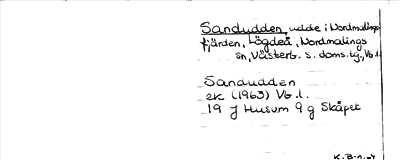 Sandudden udde i Nordmalings
fjärden, Lögdeå, Nordmalings
sn, Västerb. s. doms.tg, Vb.l.
Sandudden
ek (1963) Vb.l.
19 J Husum 9 g Skåpet